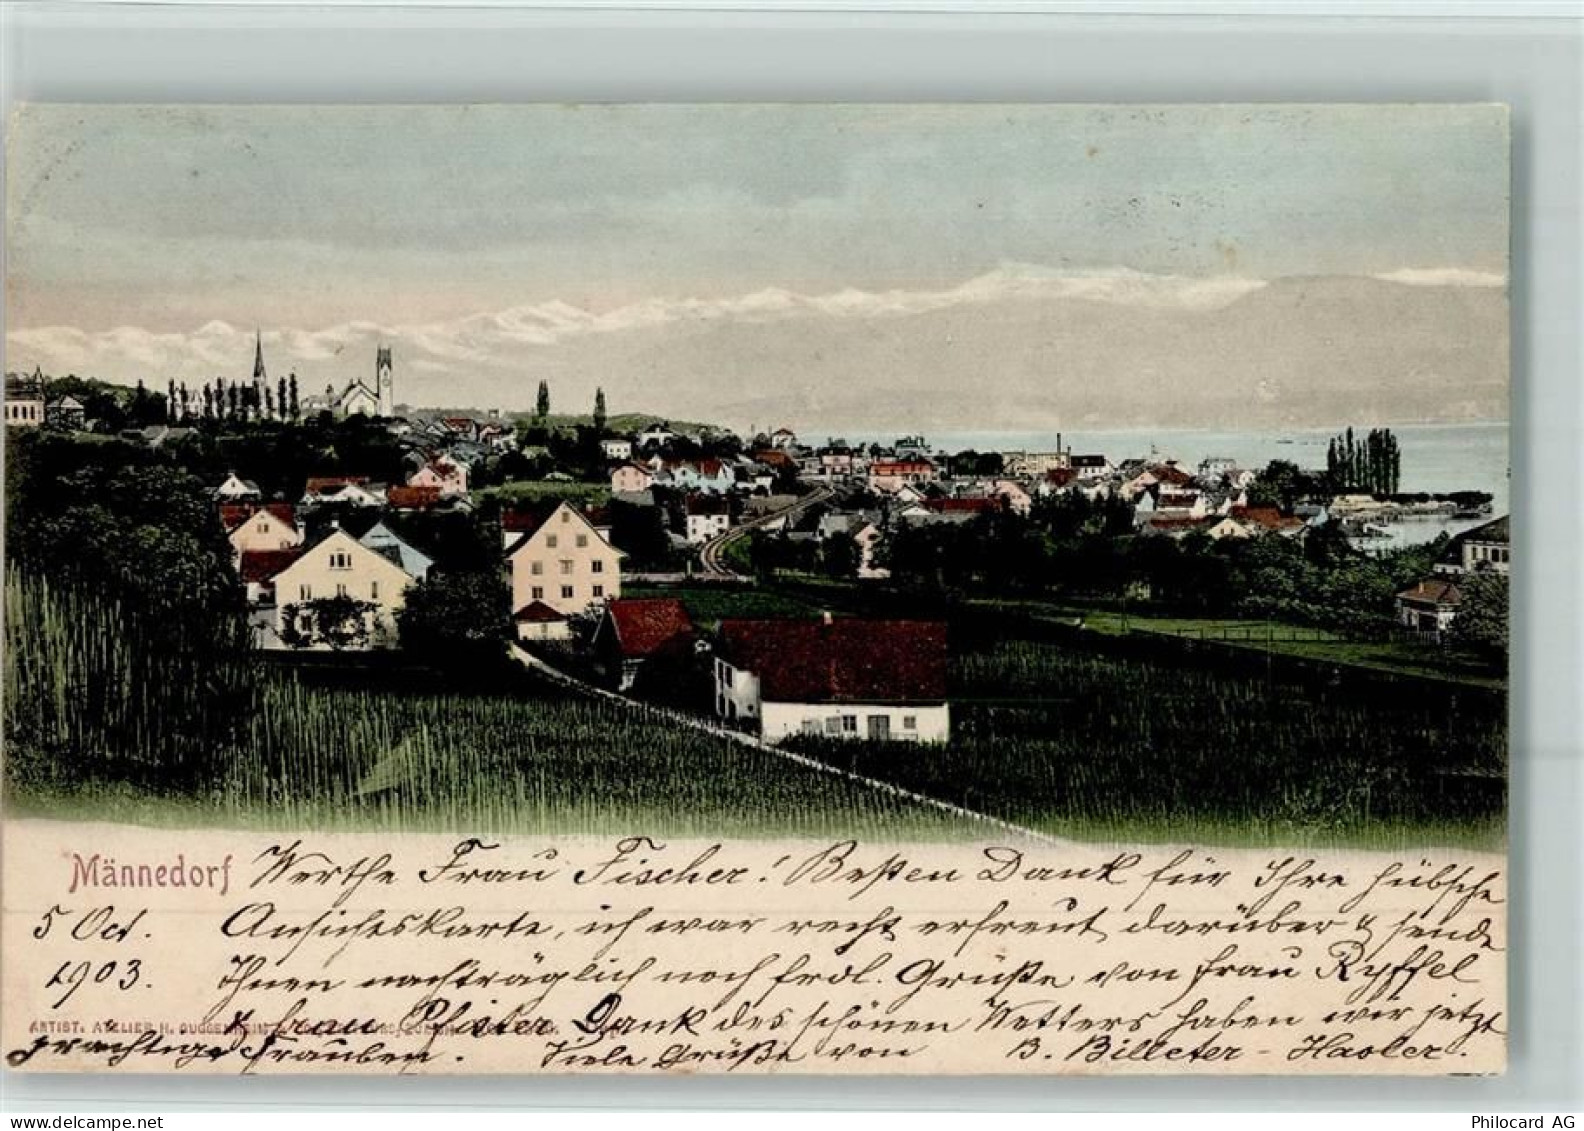 Männedorf
Werthe Frau Fischer! Besten Dank für Ihre hübsche
5 Oct. Ansichtskarte, ich war recht erfreut darüber & sende
1903. Ihnen nachträglich noch frdl. Grüße von Frau Ryffel
& Frau Pfister. Dank des schönen Wetters haben wir jetzt
ARTIST. ATELIER H. GUGGENHEIM &
prachtige Trauben. Viele Grüße von B. Billeter-Hasler.
Philocard AG